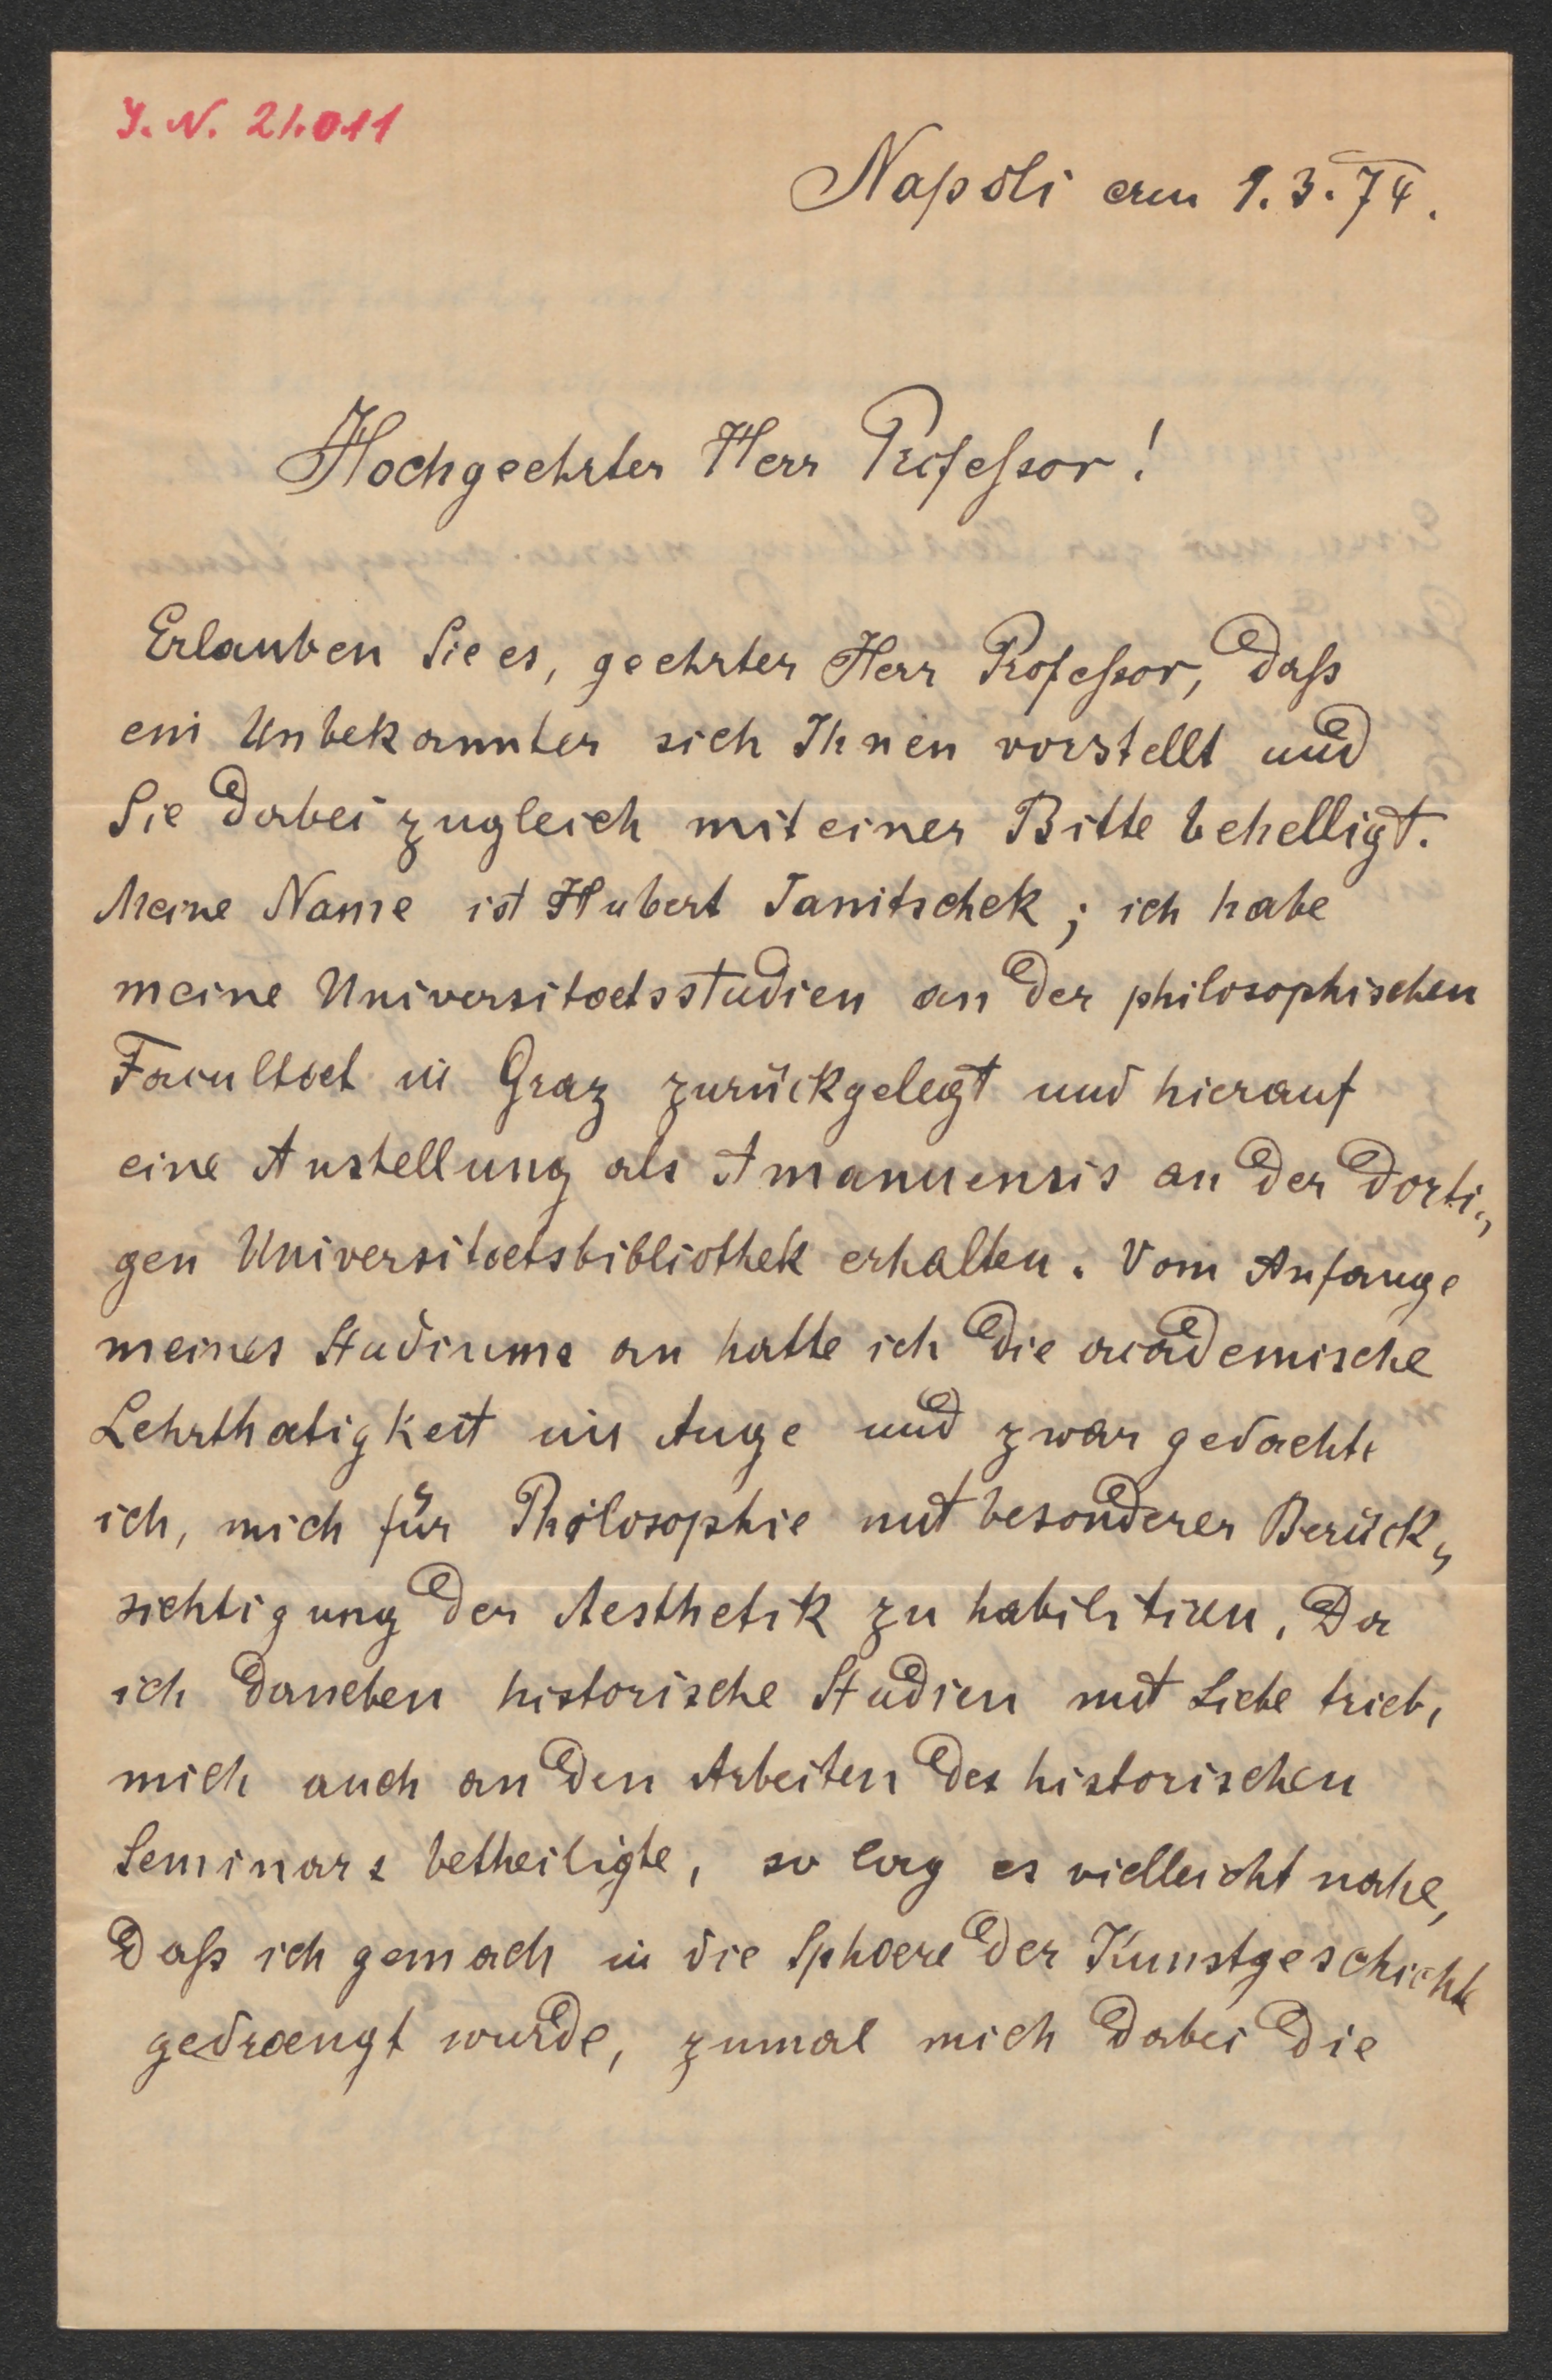 J. N. 21.011
Napoli am 1.3.74.
Hochgeehrter Herr Professor!
Erlauben Sie es, geehrter Herr Professor, daß
ein Unbekannter sich Ihnen vorstellt und
Sie dabei zugleich mit einer Bitte behelligt.
Meine Name ist Hubert Janitschek; ich habe
meine Universitaetsstudien an der philosophischen
Facultaet in Graz zurückgelegt und hierauf
eine Anstellung als Amanuensis an der dorti„
gen Universitaetsbibliothek erhalten. Vom Anfange
meines Studiums an hatte ich die academische
Lehrthatigkeit ins Auge und zwar gedachte
ich, mich für Philosophie mit besonderer Berück„
sichtigung der Aesthetik zu habilitiren. Da
ich daneben historische Studien mit Liebe trieb,
mich auch an den Arbeiten des historischen
Seminars betheiligte, so lag es vielleicht nahe,
daß ich gemach in die Sphaere der Kunstgeschichte
gedraengt wurde, zumal mich dabei die